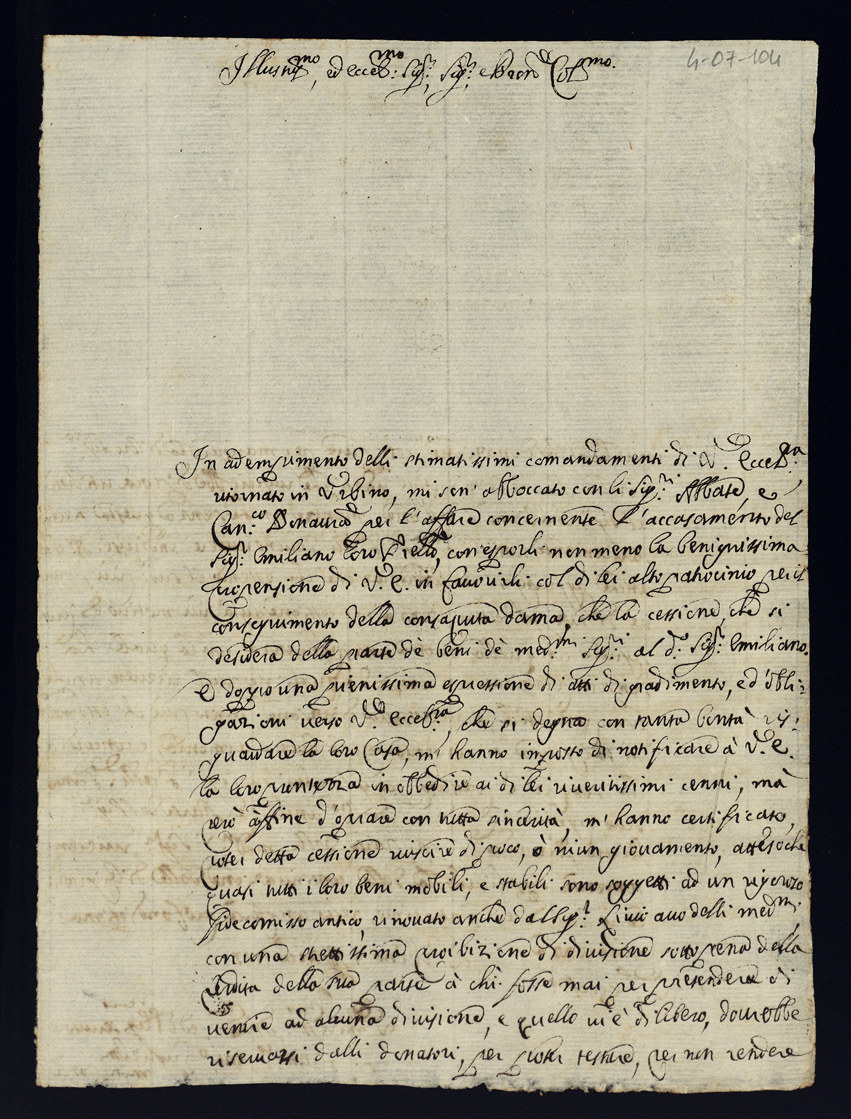 4-07-104
Illustr.mo, ed Eccell.mo Sig.r, Sig.r, e Pron.e Col.mo.
In adempimento delli stimatissimi comandamenti di V. Eccell.za
ritornato in Urbino, mi son' abboccato con li Sig.ri Abbate, e
Can.co Bonaura per l'affare concernente l'accasamento del
Sig.r Emiliano loro Fratello, con esporli non meno la benignissima
propensione di V. E. in favorirli col di lei alto patrocinio per il
conseguimento della consaputa dama, che la cessione, che si
desidera della parte de beni de med.mi Sig.ri al d.o Sig.r Emiliano.
E dopo una pienissima espressione di atti di gradimento, ed obli-
gazioni verso V. Eccell.za, che si degna con tanta bontà ris-
guardare la loro Casa, m' hanno imposto di notificare à V. E.
la loro prontezza in obbedire ai di lei riveritissimi cenni, mà
però affine d'oprare con tutta sincerità m' hanno certificato,
poter detta cessione riuscire di poco, ò niun giovamento, attesoche
quasi tutti i loro beni mobili, e stabili sono soggetti ad un rigoroso
Fidecomisso antico, rinovato anche dal Sig.r Livio avo delli med.mi
con una strettissima proibizione di divisione sotto pena della
perdita della sua parte à chi fosse mai per pretendere di
venire ad alcuna divisione, e quello vi è di libero, dovrebbe
riservarsi dalli donatori, per poter testare, per non rendere